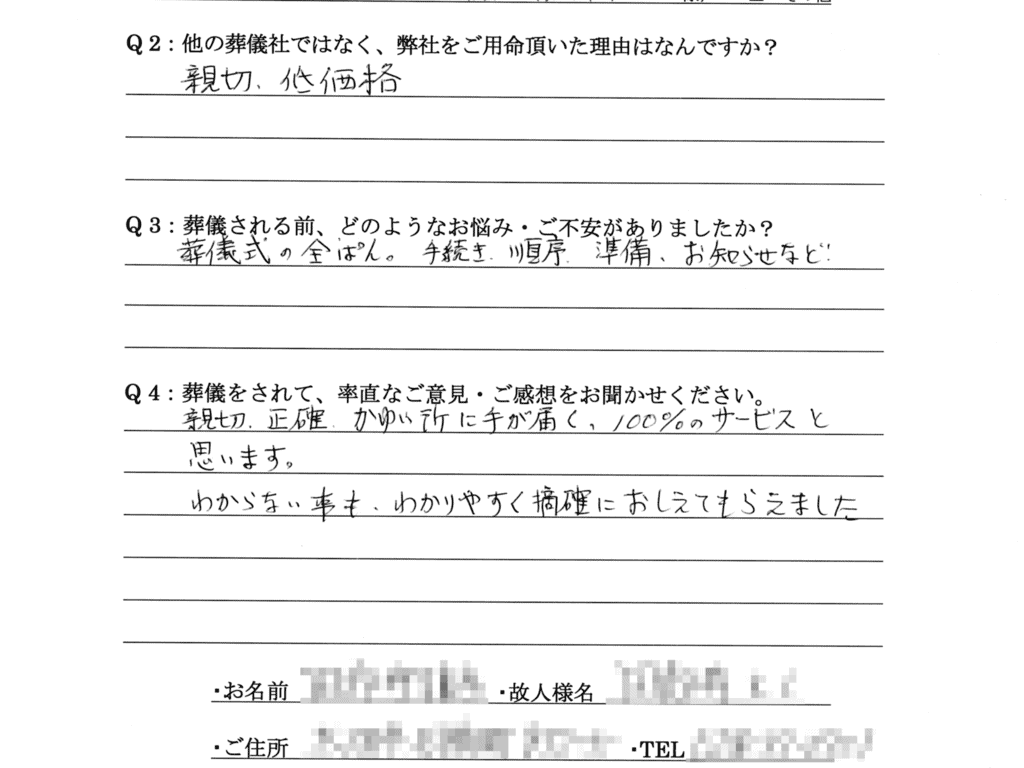 Q2：他の葬儀社ではなく、弊社をご用命頂いた理由はなんですか？
親切、低価格
Q3：葬儀される前、どのようなお悩み・ご不安がありましたか？
葬儀式の全ぱん。手続き、順序、準備、お知らせなど!
Q4：葬儀をされて、率直なご意見・ご感想をお聞かせください。
親切、正確、かゆい所に手が届く、100%のサービスと
思います。
わからない事も、わかりやすく摘確におしえてもらえました
・お名前 ・故人様名
・ご住所 ・TEL